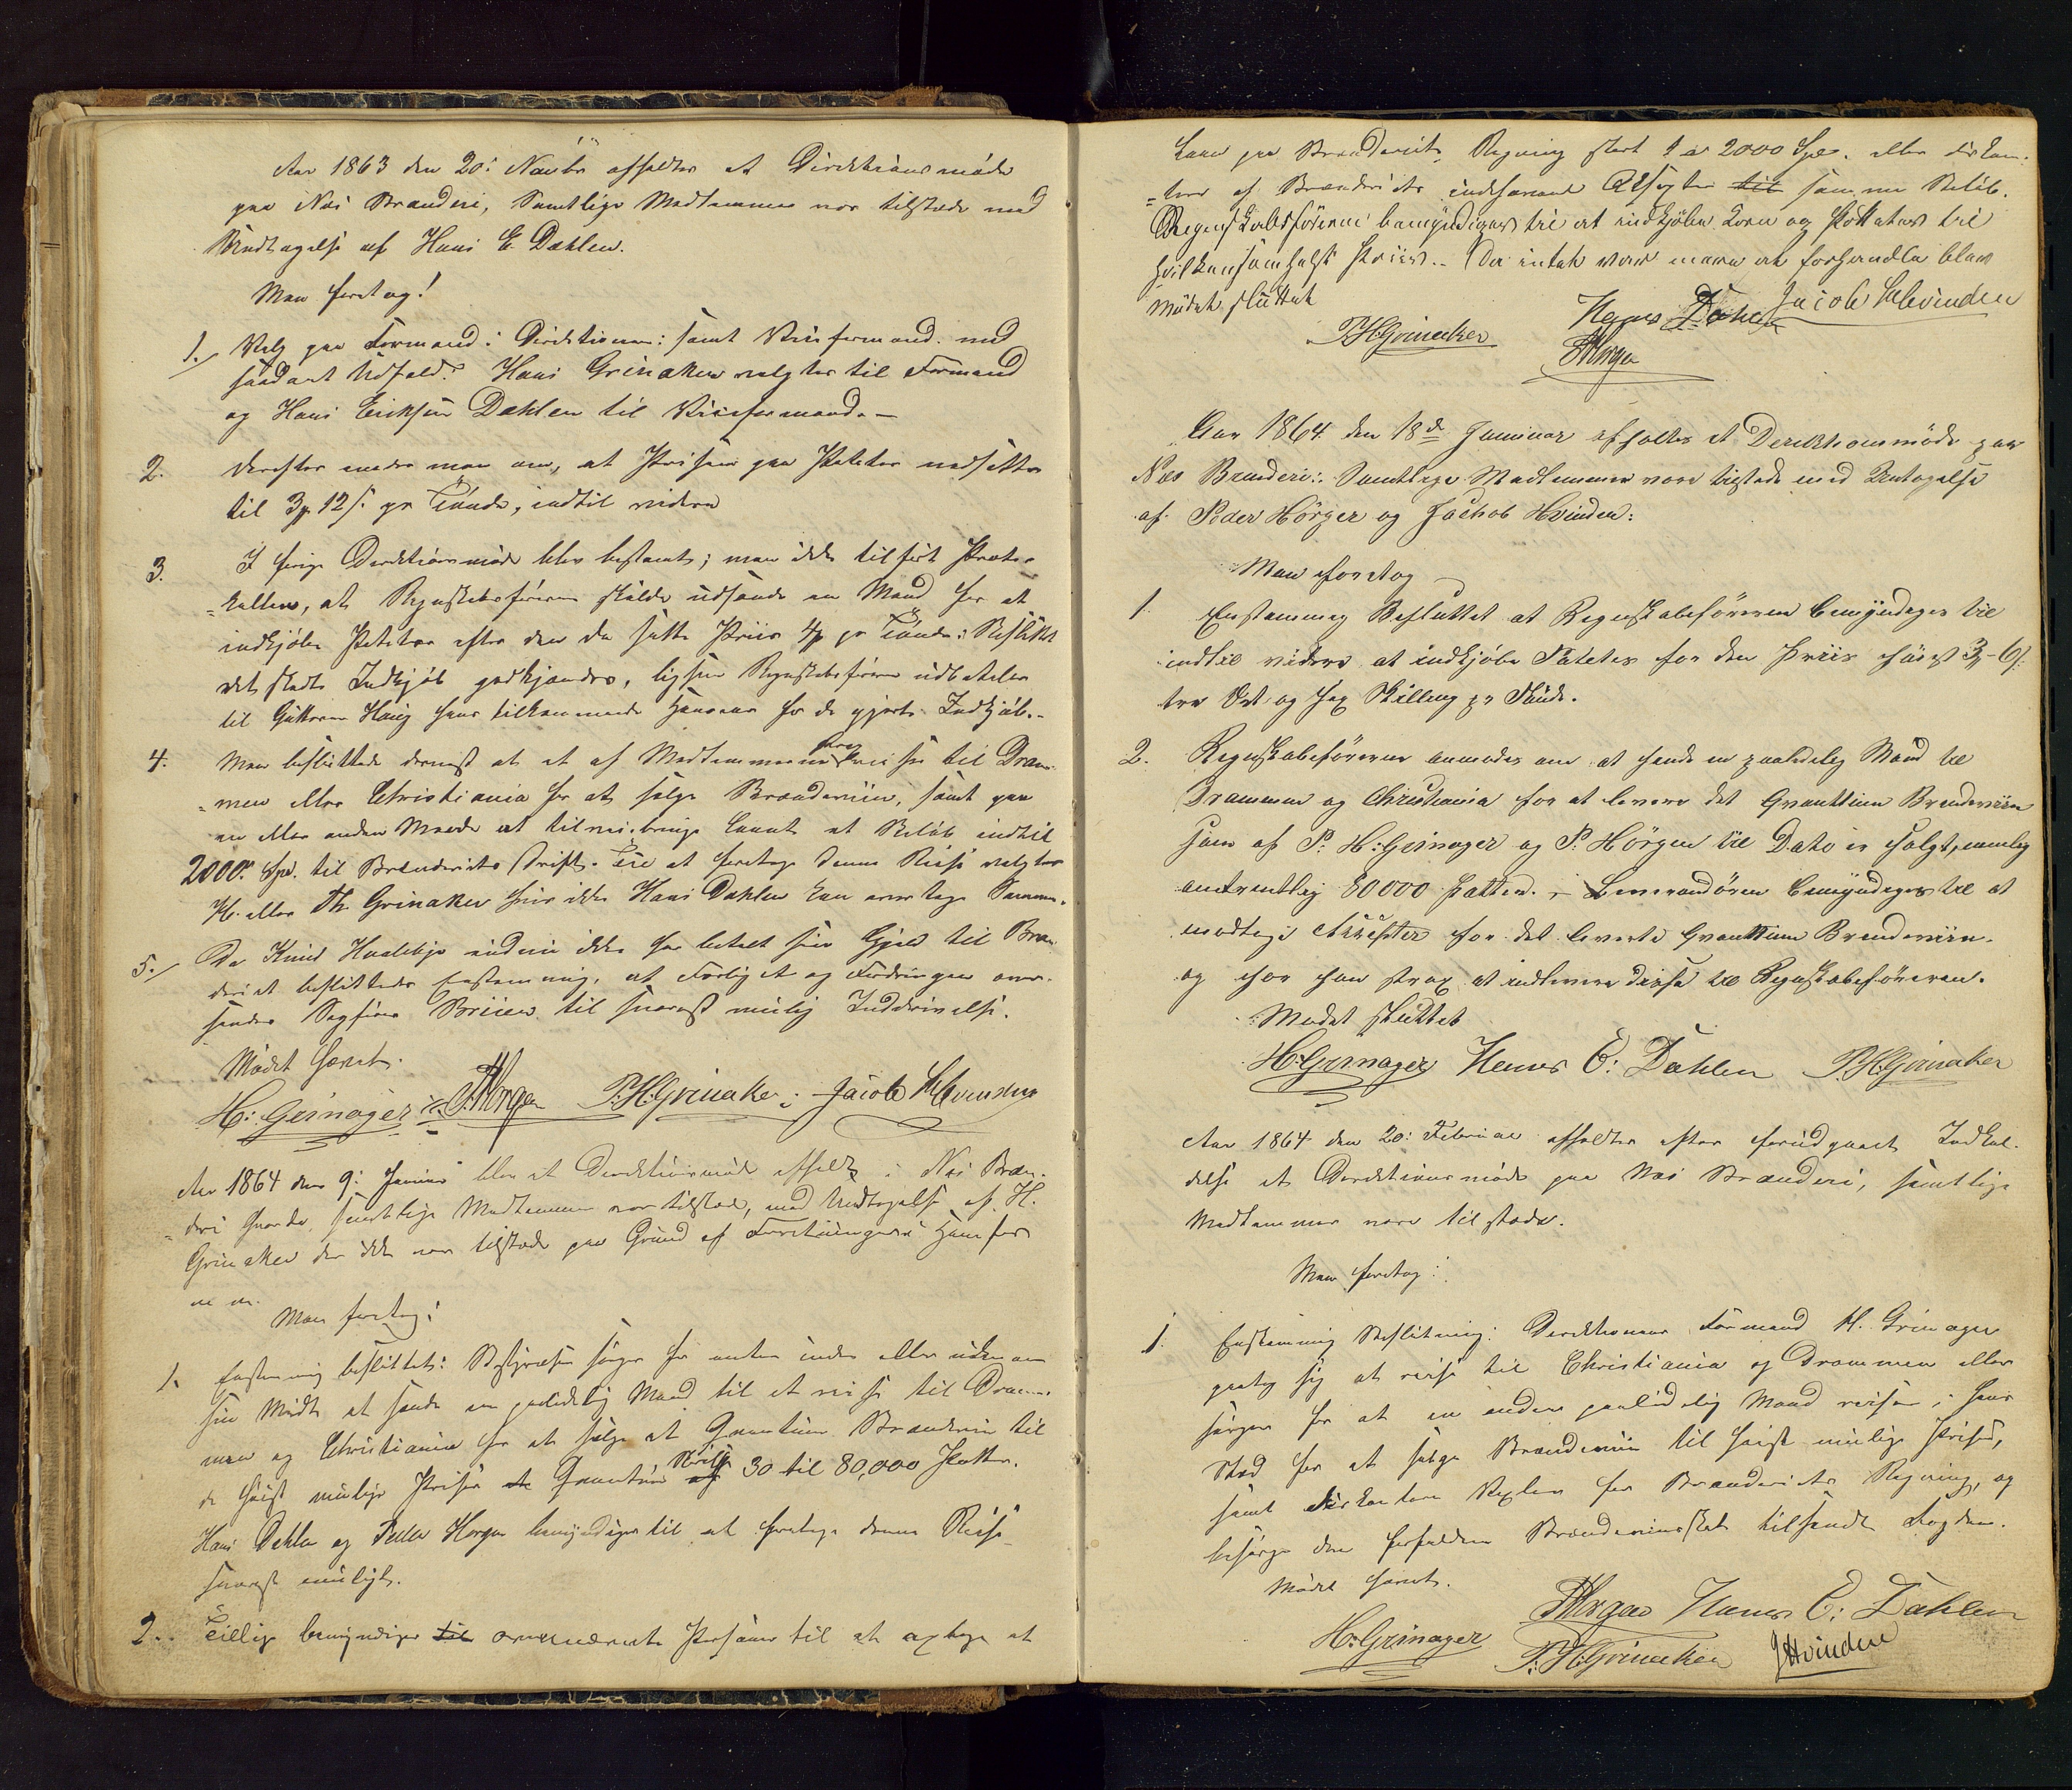 Aar 1863 den 20: Novbr afholdtes et Direktionsmöde
paa Næs Brænderi, Samtlige Medlemmer var tilstede med
Undtagelse af Hans E. Dæhlen.
Man foretog!
1. Valg paa Formand i Direktionen samt Viseformand med
saadant Udfald: Hans Grinaker valgtes til Formand
og Hans Eriksen Dæhlen til Viseformand. —
2. Derefter enedes man om, at Prisen paa Poteter nedsættes
til 3 12 s. pr Tönde, indtil videre
3. I forrige Direktionsmöde blev bestemt; men ikke tilført Proto-
kollen, at Regnskabsföreren skulde udsende en Mand for at
indkjöbe Poteter efter den da satte Priis 4 pr Tönde: Besluttet
det skedte Indkjöb godkjendes, ligesom Regnskabsföreren udbetaler
til Guttorm Haug hans tilkommende for de gjorte Indkjöb. -
4. Man besluttede dernæst at et af Medlemmerne reise til Dram-
men eller Christiania for at sælge Brændeviin, samt paa
en eller anden Maade at tilveiebringe Laant et Belöb indtil
2000 Spd. til Brænderiets Drift. Til at foretage denne Reise valgtes
H. eller Th. Grinaker hvis ikke Hans Dæhlen kan overtage Samme.
5. Da Knud endnu ikke har betalt sin Gjæld til Bræn-
deriet besluttedes Eenstemmig, at Forliget og Fordringen over-
sendes Sagförer Briien til snarest mulig Inddrivelse.
Mödet hævet.
H: Grinager P. Horgen P. H. Grinaker Jacob Hvinden
Aar 1864 den 9: Januar blev et Direktionsmöde afholdt i Næs Bræn-
deri hvor da samtlige Medlemmer var tilstede, med Undtagelse af H.
Grinaker der ikke var tilstede paa Grund af Forretninger
Man foretog:
1. Eenstemmig besluttet: Bestyrelsen sörger for enten inden eller udenom
sin Midte at sende en paalidelig Mand til at reise til Dram-
men og Christiania for at sælge et Qvantum Brændeviin til
de höist mulige Priser Qvantum 30 til 80,000 Potter.
Hans Dæhlen og Peder Horgen bemyndiges til at foretage denne Reise
snarest muligt.
2. Tillige bemyndiges til ovennævnte Personer til at optage et
Laan paa Brænderiets Regning stort 1 a 2000 Spd. eller diskon-
tere af Brænderiets indehavende til samme Belöb.
Regnskabsföreren bemyndiges til at indkjöbe Korn og Potteter til
hvilkensomhelst Priis. - Da intet var mere at forhandle blev
Mödet sluttet
P. H. Grinaker Hans Dæhlen Jacob Hvinden
P. Horgen
Aar 1864 den 18de Januar afholtes et Derektionsmöde paa
Næs Brenderi: Samtlige Medlemmer vare tilstede med Untagelse
af Peder Hörgen og Jachob Hvinden:
Man foretog
1. Enstemmig Besluttet at Regnskabsföreren bemyndiges til
indtil videre at indkjöbe Poteter for den Priis höist 3-6 s:
tre Ort og sex Skilling pr Tønde.
2. Regnskabsföreren anmodes om at sende en paalidelig Mand til
Drammen og Christiania for at levere det Qvanttum Brendeviin
som af P. H: Grinager og P. Hörgen til Dato er solgt, nemlig
omtrentlig 80000 Potter. - Leverandören bemyndiges til at
modtage for det leverte Qvanttum Brendeviin.
og har han strax at indlevere disse til Regnskabsföreren.
Mødet sluttet
H: Grinager Hans E: Dæhlen P. H. Grinaker
Aar 1864 den 20: Februar afholdtes efter forudgaaet Indkal-
delse et Direktionsmöde paa Næs Brænderi, samtlige
Medlemmer vare tilstede.
Man foretog:
1. Enstemmig Beslutning: Derektionens Formand H. Grinager
paatog sig at reise til Christiania og Drammen eller
sörger for at en anden paalidelig Mand reiser i hans
Sted for at sælge Brændeviin til höist mulige Priser,
samt diskontere Vexler for Brænderiets Regning, og
besörge den forfaldne Brændeviinsskat tilsendt Fogden.
Mödet hævet.
P. Horgen Hans E: Dæhlen
H: Grinager P. H. Grinaker J Hvinden